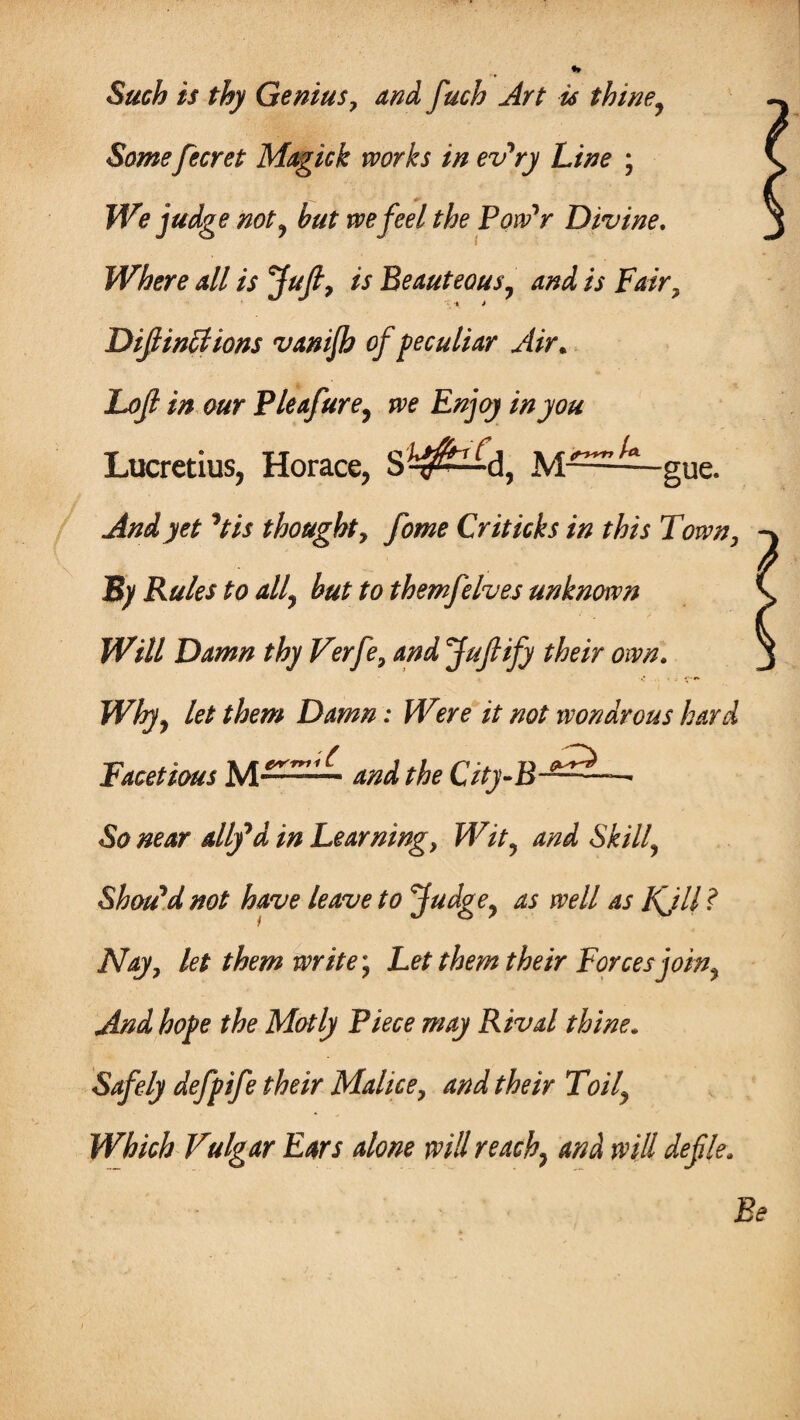 Such is thy Genius, and ſuch Art is thine,
Some ſecret Magick works in ev'ry Line ;
We judge not, but we feel the Pow'r Divine.
Where all is Juſt, is Beauteous, and is Fair,
Diſtinctions vaniſh of peculiar Air.
Loſt in our Pleaſure, we Enjoy in you
Lucretius, Horace, S—d, M—gue.
And yet 'tis thought, ſome Criticks in this Town,
By Rules to all, but to themſelves unknown
Will Damn thy Verſe, and Juſtify their own.
Why, let them Damn : Were it not wondrous hard
Facetious M— and the City-B—
So near ally'd in Learning, Wit, and Skill,
Shou'd not have leave to Judge, as well as Kill ?
Nay, let them write; Let them their Forces join,
And hope the Motly Piece may Rival thine.
Safely deſpiſe their Malice, and their Toil,
Which Vulgar Ears alone will reach, and will defile.
Be